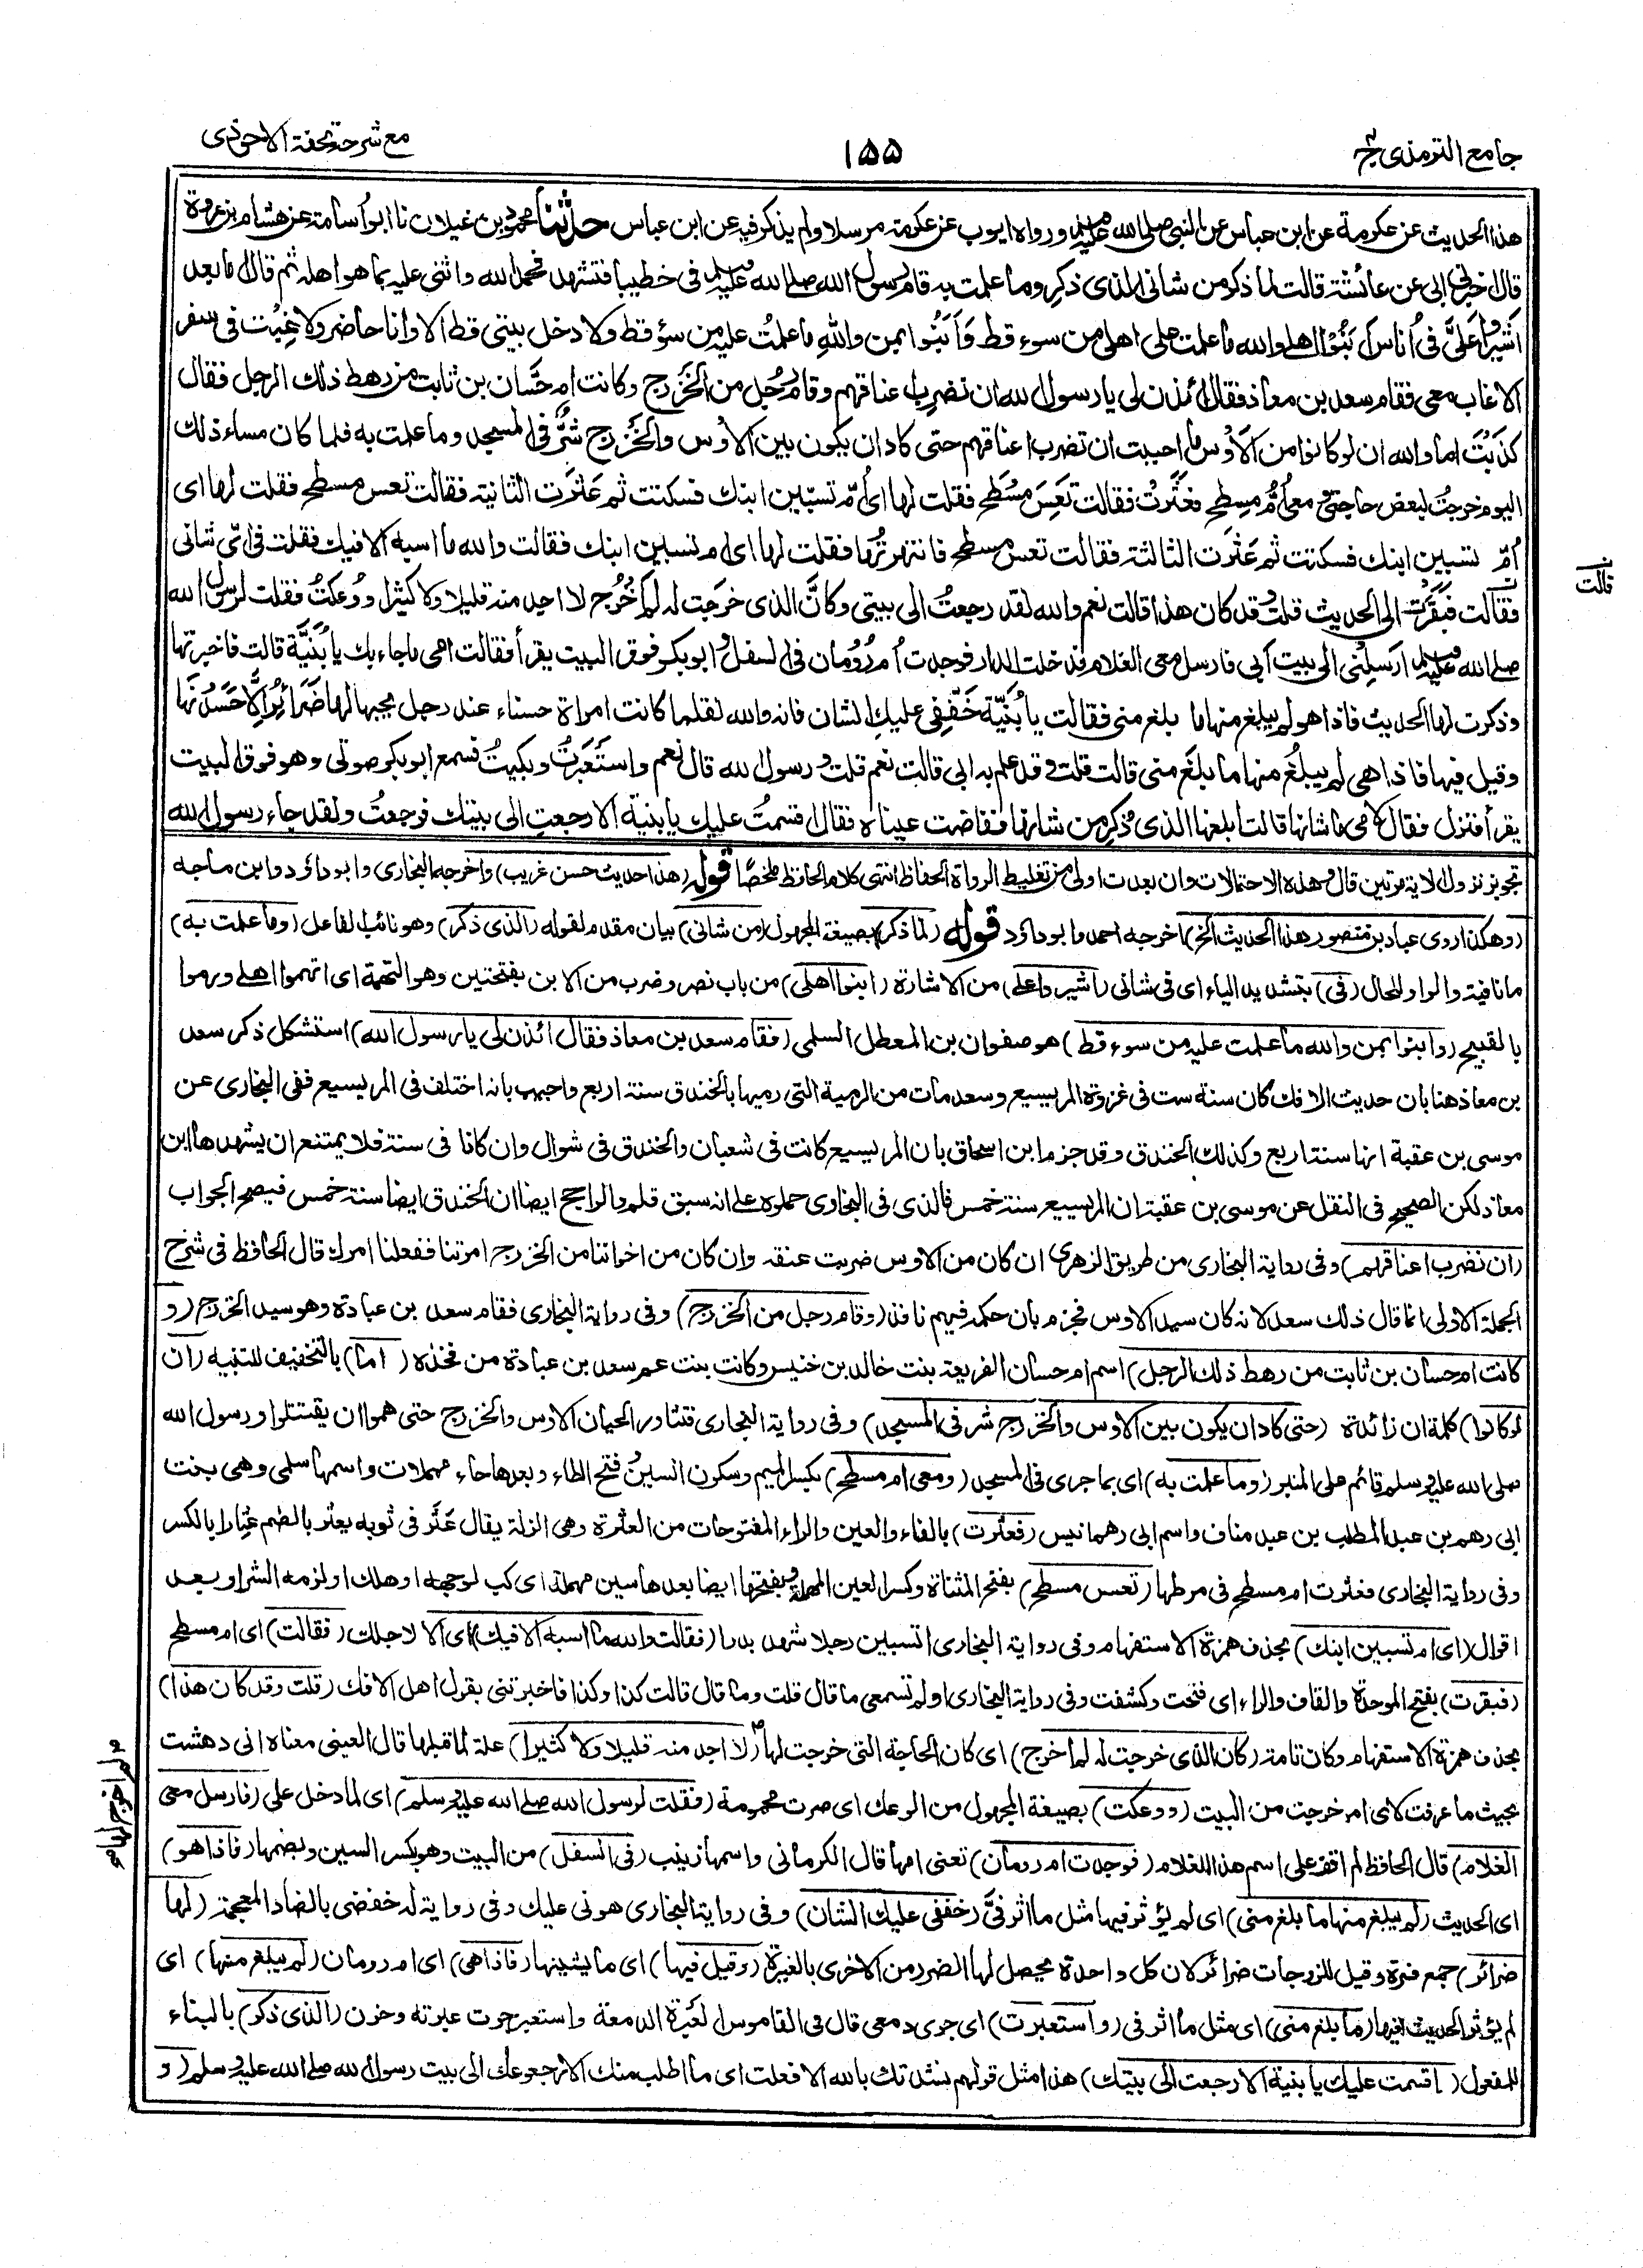 جامع الترمذى ج٤
١٥٥
مع شرحه تحفة الاحوذى
هذا الحديث عن عكرمة عن ابن عباس عن النبى صلى الله عليه وسلم ورواه ايوب عن عكرمة مرسلا ولم يذكر فيه عن ابن عباس حدثنا محمود بن غيلان نا ابو اُسامة عن هشام بن عروة
قال اخبرنى ابى عن عائشة قالت لما ذكر من شانى الذى ذُكِر وما علمت به قام رسول الله صلى الله عليه وسلم فىّ خطيبا فتشهد فحمد الله واثنى عليه بما هو اهله ثم قال اما بعد
اَشيروا عَلىَّ فى اُناسٍ اَبَنُوا اهلى والله ما علمت على اهلى من سوء قط وَاَبَنُوا بمن واللهِ ما علمتُ عليه من سوء قط ولا دخل بيتى قط الا وانا حاضر ولا غِبْت فى سفر
الا غاب معى فقام سعد بن معاذ فقال ائذن لى يا رسول الله ان نضرب اعناقهم وقام رجُل من الخَزرج وكانت ام حَسَّان بن ثابت من رهط ذلك الرجل فقال
كذَبْتَ اما والله ان لو كانوا من الاَوْس ما احببت ان تضرب اعناقهم حتى كاد ان يكون بين الاَوْس والخَزْرج شرٌّ فى المسجد وما علمت به فلما كان مساء ذلك
اليوم خرجتُ لبعض حاجتى ومعى اُمُّ مِسطح فعَثَرتْ فقالت تَعِسَ مِسْطَح فقلت لها اىْ اُمِّ تسبّين ابنك فسكتت ثم عَثَرَت الثانية فقالت تعس مسطح فقلت لها اى
اُمِّ تسبين ابنك فسكتت ثم عَثَرَت الثالثة فقالت تعس مسطح فانتهرتُها فقلت لها اى ام تسبين ابنك فقالت والله ما اسبه الا فيك فقلت فى اىّ شانى
فقالت فبَقَرَتْ الى الحديث قلت وقد كان هذا قالت نعم والله لقد رجعتُ الى بيتى وكانَّ الذى خرَجت له لم اَخْرُج لا اجد منه قليلا ولا كثيرا ووُعكتُ فقلت لرسول الله
صلى الله عليه وسلم ارسِلْنى الى بيت اَبى فارسل معى الغلام فدخلت الدار فوجدت اُم رُوْمان فى السفل وابو بكر فوق البيت يقرأ فقالت امى ما جاء بك يا بُنَيَّة قالت فاخبرتها
وذكرت لها الحديث فاذا هو لم يبلغ منها ما بلغ منى فقالت يا بُنَيّة خَفِّفى عليكِ الشان فانه والله لقلما كانت امراة حسناء عند رجل يحبها لها ضَرَائر اِلّا حَسَدْنَها
وقيل فيها فاذا هى لم يبلُغ منها ما بلَغَ منى قالت قلت وقد علم به ابى قالت نعم قلت ورسول الله قال نعم واستَعْبَرتُ وبكيتُ فسمع ابو بكر صوتى وهو فوق البيت
يقرأ فنزل فقال لامى ما شانها قالت بلغها الذى ذُكِر من شانها ففاضت عيناه فقال اقسمتُ عليك يا بنية الا رجعتِ الى بيتك فرجعتُ ولقد جاء رسول الله
تجويز نزول الاية مرتين قال وهذه الاحتمالات وان بعدت اولى من تغليط الرواة الحفاظ انتهى كلام الحافظ ملخصًا قوله (هذا حديث حسن غريب) واخرجه البخارى وابو داؤد وابن ماجه
(وهكذا روى عباد بن منصور هذا الحديث الخ) اخرجه احمد وابو داؤد قوله (لما ذكر) بصيغة المجهول (من شانى) بيان مقدم لقوله (الذى ذكر) وهو نائب الفاعل (وما علمت به)
ما نافية والواو للحال (فى) بتشديد الياء اى فى شانى (اشيروا على) من الاشارة (ابنوا اهلى) من باب نصر وضرب من الابن بفتحتين وهو التهمة اى اتهموا اهلى ورموا
بالقبيح (وابنوا بمن والله ما علمت عليه من سوء قط) هو صفوان بن المعطل السلمى (فقام سعد بن معاذ فقال ائذن لى يا رسول الله) استشكل ذكر سعد
بن معاذ هنا بان حديث الافك كان سنة ست فى غزوة المريسيع وسعد مات من الرمية التى رميها بالخندق سنة اربع واجيب بانه اختلف فى المريسيع ففى البخارى عن
موسى بن عقبة انها سنة اربع وكذلك الخندق وقد جزم ابن اسحاق بان المريسيع كانت فى شعبان والخندق فى شوال وان كانا فى سنة فلا يمتنع ان يشهدها ابن
معاذ لكن الصحيح فى النقل عن موسى بن عقبة ان المريسيع سنة خمس فالذى فى البخارى حملوه على انه سبق قلم والراجح ايضا ان الخندق ايضا سنة خمس فيصح الجواب
(ان نضرب اعناقهم) وفى رواية البخارى من طريق الزهرى ان كان من الاوس ضربت عنقه وان كان من اخواننا من الخزرج امرتنا ففعلنا امرك قال الحافظ فى شرح
الجملة الاولى انما قال ذلك سعد لانه كان سيد الاوس فجزم بان حكمه فيهم نافذ (وقام رجل من الخزرج) وفى رواية البخارى فقام سعد بن عبادة وهو سيد الخزرج (و
كانت ام حسان بن ثابت من رهط ذلك الرجل) اسم ام حسان الفريعة بنت خالد بن خنيس وكانت بنت عم سعد بن عبادة من فخذه (اما) بالتخفيف للتنبيه (ان
لو كانوا) كلمة ان زائدة (حتى كاد ان يكون بين الاوس والخزرج شر فى المسجد) وفى رواية البخارى فتثاور الحيان الاوس والخزرج حتى هموا ان يقتتلوا ورسول الله
صلى الله عليه وسلم قائم على المنبر (وما علمت به) اى بما جرى فى المسجد (ومعى ام مسطح) بكسر الميم وسكون السين وفتح الطاء وبعدها حاء مهملات واسمها سلمى وهى بنت
ابى رهم بن عبد المطلب بن عبد مناف واسم ابى رهم انيس (فعثرت) بالفاء والعين والراء المفتوحات من العثرة وهى الزلة يقال عَثَر فى ثوبه يعثر بالضم عِثارا بالكسر
وفى رواية البخارى فعثرت ام مسطح فى مرطها (تعس مسطح) بفتح المثناة وكسر العين المهملة وبفتحها ايضا بعدها سين مهملة اى كب لوجهه او هلك او لزمه الشر او بعد
اقوال (اى ام تسبين ابنك) بحذف همزة الاستفهام وفى رواية البخارى اتسبين رجلا شهد بدرا (فقالت والله ما اسبه الا فيك) اى الا لاجلك (فقالت) اى ام مسطح
(فبقرت) بفتح الموحدة والقاف والراء اى فتحت وكشفت وفى رواية البخارى اولم تسمعى ما قال قلت وما قال قالت كذا وكذا فاخبرتنى بقول اهل الافك (قلت وقد كان هذا)
بحذف همزة الاستفهام وكان تامة (كان الذى خرجت له لم اخرج) اى كان الحاجة التى خرجت لها (لا اجد منه قليلا ولا كثيرا) علة لما قبلها قال العينى معناه انى دهشت
بحيث ما عرفت لاى امر خرجت من البيت (ووعكت) بصيغة المجهول من الوعك اى صرت محمومة (فقلت لرسول الله صلى الله عليه وسلم) اى لما دخل على (فارسل معى
الغلام) قال الحافظ لم اقف على اسم هذا الغلام (فوجدت ام رومان) تعنى امها قال الكرمانى واسمها زينب (فى السفل) من البيت وهو بكسر السين وبضمها (فاذا هو)
اى الحديث (لم يبلغ منها ما بلغ منى) اى لم يؤثر فيها مثل ما اثر فىَّ (خففى عليك الشان) وفى رواية البخارى هونى عليك وفى رواية له خفضى بالضاد المعجمة (لها
ضرائر) جمع ضرة وقيل للزوجات ضرائر لان كل واحدة يحصل لها الضرر من الاخرى بالغيرة (وقيل فيها) اى ما يشينها (فاذا هى) اى ام رومان (لم يبلغ منها) اى
لم يؤثر الحديث فيها (ما بلغ منى) اى مثل ما اثر فى (واستعبرت) اى جرى دمعى قال فى القاموس العَبْرة الدمعة واستعبر جرت عبرته وحزن (الذى ذكر) بالبناء
للمفعول (اقسمت عليك يا بنية الا رجعت الى بيتك) هذا مثل قولهم نشدتك بالله الا فعلت اى ما اطلب منك الا رجوعك الى بيت رسول الله صلى الله عليه وسلم (و
قالت
لم اخرج لها